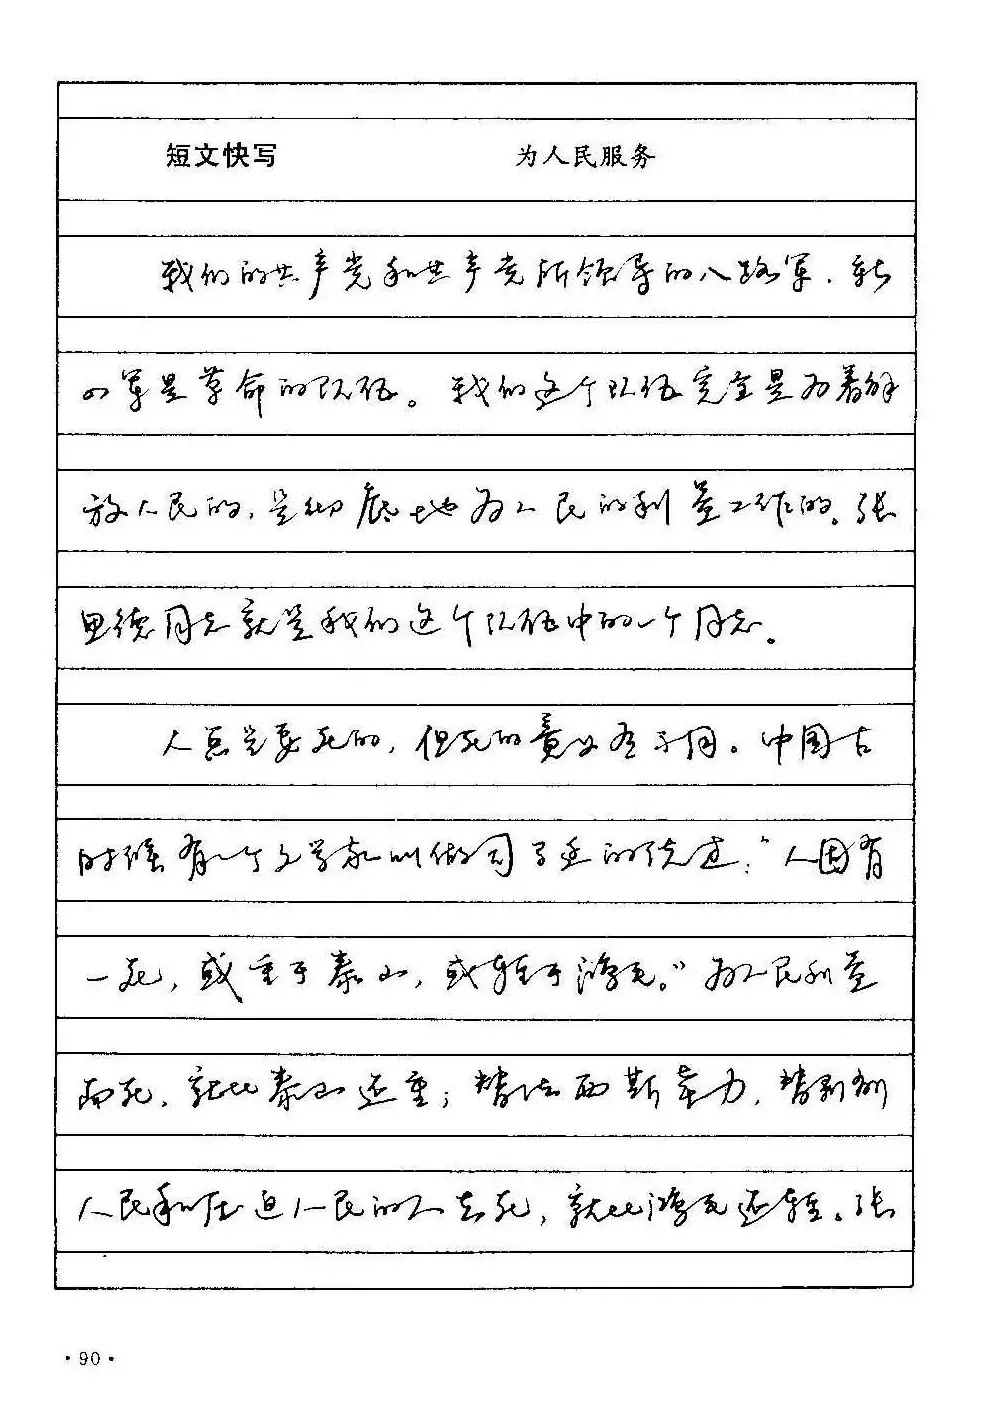 短文快写 为人民服务
我们的共产党和共产党所领导的八路军、新
四军是革命的队伍。我们这个队伍完全是为着解
放人民的,是彻底地为人民的利益工作的。张
思德同志就是我们这个队伍中的一个同志。
人总是要死的,但死的意义有不同。中国古
时候有一个文学家叫做司马迁的说过:“人固有
一死,或重于泰山,或轻于鸿毛。”为人民利益
而死,就比泰山还重;替法西斯卖力,替剥削
人民和压迫人民的人去死,就比鸿毛还轻。张
·90·